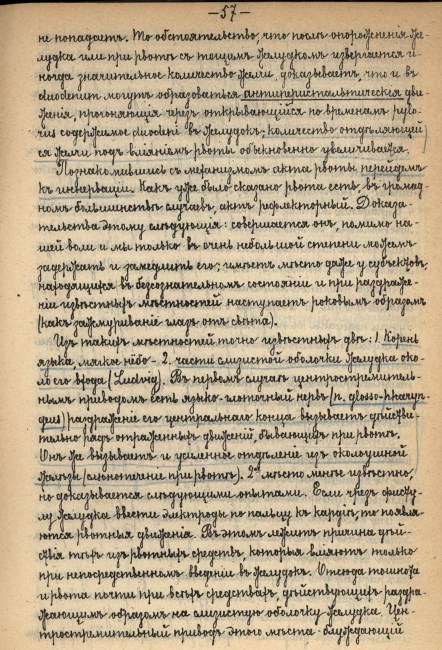 —57—
не попадаетъ. То обстоятельство, что послѣ опорожненія же-
лудка или при рвотѣ съ тощимъ желудкомъ извергается и-
ногда значительное количество желчи, доказываетъ, что и въ
duodenum могутъ образоваться антиперистальтическія дви-
женія, прогоняющія черезъ открывающійся по временамъ pylo-
rus содержимое duodeni въ желудокъ; количество отдѣляющей
ся желчи подъ вліяніемъ рвоты обыкновенно увеличивается.
Познакомившись съ механизмомъ акта рвоты перейдемъ
къ иннервации. Какъ уже было сказано рвота есть, въ громад-
номъ большинствѣ случаевъ, актъ рефлекторный. Доказа-
тельства этому слѣдующія: совершается онъ, помимо на-
шей воли и мы только въ очень небольшой степени можемъ
задержать и замедлить его; имѣетъ мѣсто даже у субъектовъ,
находящихся въ безсознательномъ состояніи и при раздраже-
ніи извѣстныхъ мѣстностей наступаетъ роковымъ образомъ
(какъ зажмуриваніе глазъ отъ свѣта).
Изъ такихъ мѣстностей точно извѣстны двѣ: 1. Корень
языка, мягкое нёбо - 2. части слизистой оболочки желудка око-
ло его входа (Ludwig). Въ первомъ случаѣ центростремитель-
нымъ приводомъ есть языко-глоточный нервъ (n. glosso-pharyn-
geus) раздраженіе его центральнаго конца вызываетъ дѣйстви-
тельно рядъ отраженныхъ движеній, бывающихъ при рвотѣ.
Онъ же вызываетъ и усиленное отдѣленіе изъ околоушной
железы (слюнотеченіе при рвотѣ). 2ое мѣсто менѣе извѣстно,
но доказывается слѣдующими опытами. Если чрезъ фисту-
лу желудка ввести электроды по пальцу къ кардіѣ, то появля-
ются рвотныя движенія. Въ этомъ лежитъ причина дѣй-
ствія тѣхъ изъ рвотныхъ средствъ, которыя вліяютъ только
при непосредственномъ введеніи въ желудокъ. Отсюда тошнота
и рвота почти при всѣхъ средствахъ, дѣйствующихъ раздра-
жающимъ образомъ на слизистую оболочку желудка. Цен-
тростремительный приводъ этого мѣста - блуждающій